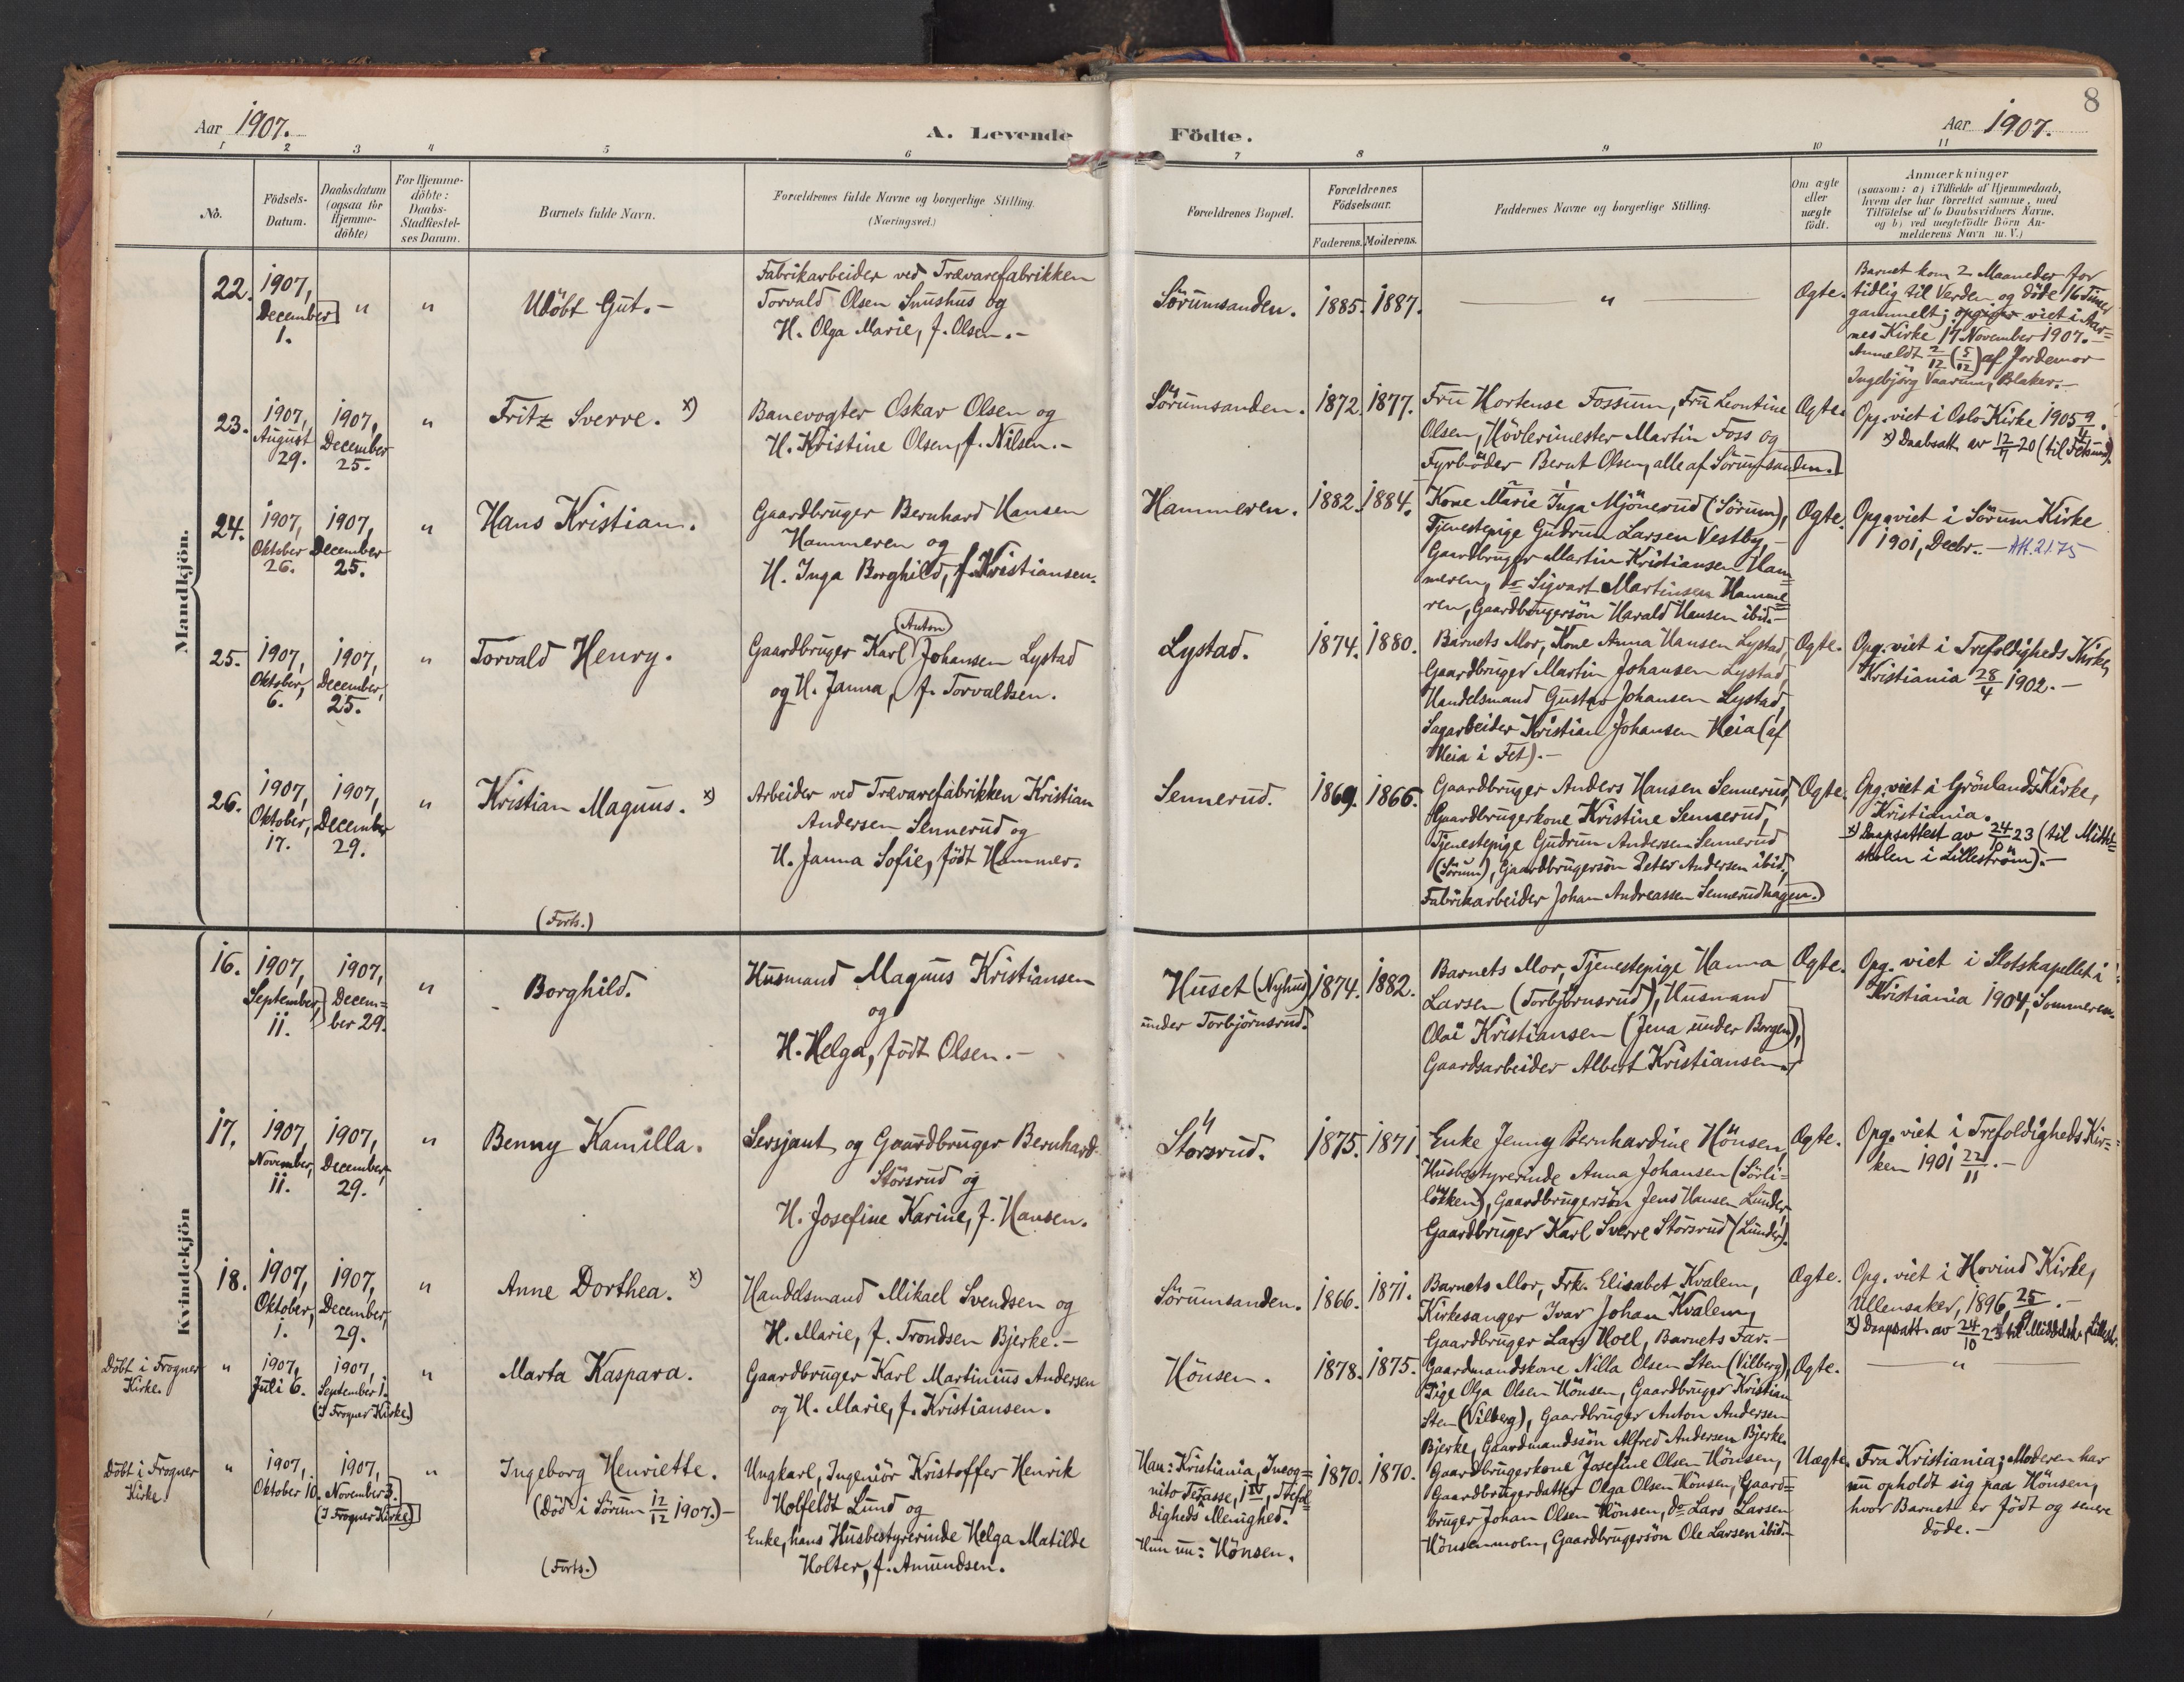 8
Aar 1907.
A. Levende Födte.
Aar 1907.
1 2 3 4 5 6 7 8 9 10 11
No.
Födsels-
Datum.
Daabsdatum
(ogsaa for
Hjemme-
döbte)
For Hjemme-
döbte:
Daabs-
Stadfæstel-
ses Datum.
Barnets fulde Navn.
Forældrenes fulde Navne og borgerlige Stilling.
(Næringsvei.)
Forældrenes Bopæl.
Forældrenes
Födselsaar.
Faderens. Moderens.
Faddernes Navne og borgerlige Stilling.
Om ægte
eller
uægte
födt.
Anmærkninger
(saasom: a) i Tilfælde af Hjemmedaab,
hvem der har forrettet samme, med
Tilföielse af to Daabsvidners Navne,
og b) ved uægtefödte Börn An-
melderens Navn m. V.)
Mandkjön.
22.
1907,
December
1.
"
"
Udöbt Gut. -
Fabrikarbeider ved Trævarefabrikken
Torvald Olsen Snushus og
H. Olga Marie, f. Olsen. -
Sörumsanden.
1885. 1887.
"
Ægte.
Barnet kom 2 Maaneder for
tidlig til Verden og döde 16 Timer
gammelt; opgiver viet i Aar=
nes Kirke 17 November 1907. -
Anmeldt 2/12 (5/12) af Jordemor
Ingebjörg Vaarum, Blaker. -
23.
1907,
August
29.
1907,
December
25.
"
Fritz Sverre. x)
Banevogter Oskar Olsen og
H. Kristine Olsen, f. Nilsen. -
Sörumsanden.
1872. 1877.
Fru Hortense Fossum, Fru Leontine
Olsen, Hövlerimester Martin Foss og
Fyrböder Bernt Olsen, alle af Sörumsanden.
Ægte.
Opg. viet i Oslo Kirke 1905 9/4.
x) Daabsatt. av 12/4 20 (til Fetsund).
24.
1907,
Oktober
26.
1907,
December
25.
"
Hans Kristian.
Gaardbruger Bernhard Hansen
Hammeren og
H. Inga Borghild, f. Kristiansen.
Hammeren.
1882. 1884.
Kone Marie Inga Mjönerud (Sörum),
Tjenestepige Gudrun Larsen Vestby, -
Gaardbruger Martin Kristiansen Ham=
meren, do Sigvart Martinsen Hamme=
ren, Gaardbrugersön Harald Hansen ibid. -
Ægte.
Opg. viet i Sörum Kirke
1901, Decbr. - Att. 21.75
25.
1907,
Oktober,
6.
1907,
December,
25.
"
Torvald Henry.
(Anton)
Gaardbruger Karl Johansen Lystad
og H. Janna, f. Torvaldsen.
Lystad.
1874. 1880.
Barnets Mor, Kone Anna Hansen Lystad,
Gaardbruger Martin Johansen Lystad,
Handelsmand Gustav Johansen Lystad,
Sagarbeider Kristian Johansen Heia (af
Heia i Fet). -
Ægte.
Opg. viet i Trefoldigheds Kirke,
Kristiania 28/4 1902. -
26.
1907,
Oktober,
17.
1907,
December
29.
"
Kristian Magnus. x)
Arbeider ved Trævarefabrikken Kristian
Andersen Sennerud og
H. Janna Sofie, födt Hammer.
Sennerud.
1869. 1866.
Gaardbruger Anders Hansen Sennerud,
Gaardbrugerkone Kristine Sennerud,
Tjenestepige Gudrun Andersen Sennerud
(Sörum), Gaardbrugersön Peter Andersen ibid,
Fabrikarbeider Johan Andreassen Sennerudhagen.)
Ægte.
Opg. viet i Grönlands Kirke,
Kristiania.
x) Daapsattest av 24/10 23 (til Middel=
skolen i Lilleström). -
(Forts.)
Kvindekjön
16.
1907,
September,
11.
1907,
Decem=
ber 29.
"
Borghild.
Husmand Magnus Kristiansen
og
H. Helga, födt Olsen. -
Huset (Nyhus)
under Torbjörnsrud.
1874. 1882.
Barnets Mor, Tjenestepige Hanna
Larsen (Torbjörnsrud), Husmand
Olai Kristiansen (Jena under Borgen),
Gaardsarbeider Albert Kristiansen.
Ægte.
Opg. viet i Slotskapellet i
Kristiania 1904, Sommeren.
17.
1907,
November,
11.
1907,
December,
29.
"
Benny Kamilla.
Sersjant og Gaardbruger Bernhard
Storsrud og
H. Josefine Karine, f. Hansen.
Storsrud.
1875. 1871.
Enke Jenny Bernhardine Hönsen,
Husbestyrerinde Anna Johansen (Sörli=
lökken), Gaardbrugersön Jens Hansen Lunder,
Gaardbruger Karl Sverre Storsrud (Lunder).
Ægte.
Opg. viet i Trefoldigheds Kir=
ken 1901 22/11. -
18.
1907,
Oktober,
1.
1907,
December,
29.
"
Anne Dorthea. x)
Handelsmand Mikael Svendsen og
H. Marie, f. Trondsen Bjerke. -
Sörumsanden.
1866. 1871.
Barnets Mor, Frk. Elisabet Kvalem,
Kirkesanger Ivar Johan Kvalem,
Gaardbruger Lars Hoel, Barnets Far. -
Ægte.
Opg. viet i Hovind Kirke,
Ullensaker, 1896 25/9. -
x) Daapsatt. av 24/10 23 til Middelsk. Lillestr.
Döbt i Frogner
Kirke.
"
1907,
Juli 6.
1907,
September 1.
(I Frogner Kirke.)
"
Marta Kaspara.
Gaardbruger Karl Martinius Andersen
og H. Marie, f. Kristiansen.
Hönsen.
1878. 1875.
Gaardmandskone Nilla Olsen Sten (Vilberg),
Pige Olga Olsen Hönsen, Gaardbruger Kristian
Sten (Vilberg), Gaardbruger Anton Andersen
Bjerke, Gaardmandssön Alfred Andersen Bjerke.
Ægte.
"
Döbt i Frogner
Kirke.
"
1907,
Oktober 10.
1907,
November 3.
(I Frogner Kirke)
"
Ingeborg Henriette.
(Död i Sörum 12/12 1907.) -
Ungkarl, Ingeniör Kristoffer Henrik
Holfeldt Lund og
Enke, hans Husbestyrerinde Helga Matilde
Holter, f. Amundsen.
Han: Kristiania, Incog=
nito Terasse, 1 IV, Trefol=
digheds Menighed.
Hun nu: Hönsen.
1870. 1870.
Gaardbrugerkone Josefine Olsen Hönsen,
Gaardbrugerdatter Olga Olsen Hönsen, Gaard=
bruger Johan Olsen Hönsen, do Lars Larsen
Hönsenmoen, Gaardbrugersön Ole Larsen ibid. -
Uægte.
Fra Kristiania; Moderen har
nu opholdt sig paa Hönsen,
hvor Barnet er födt og senere
döde. -
(Forts.)